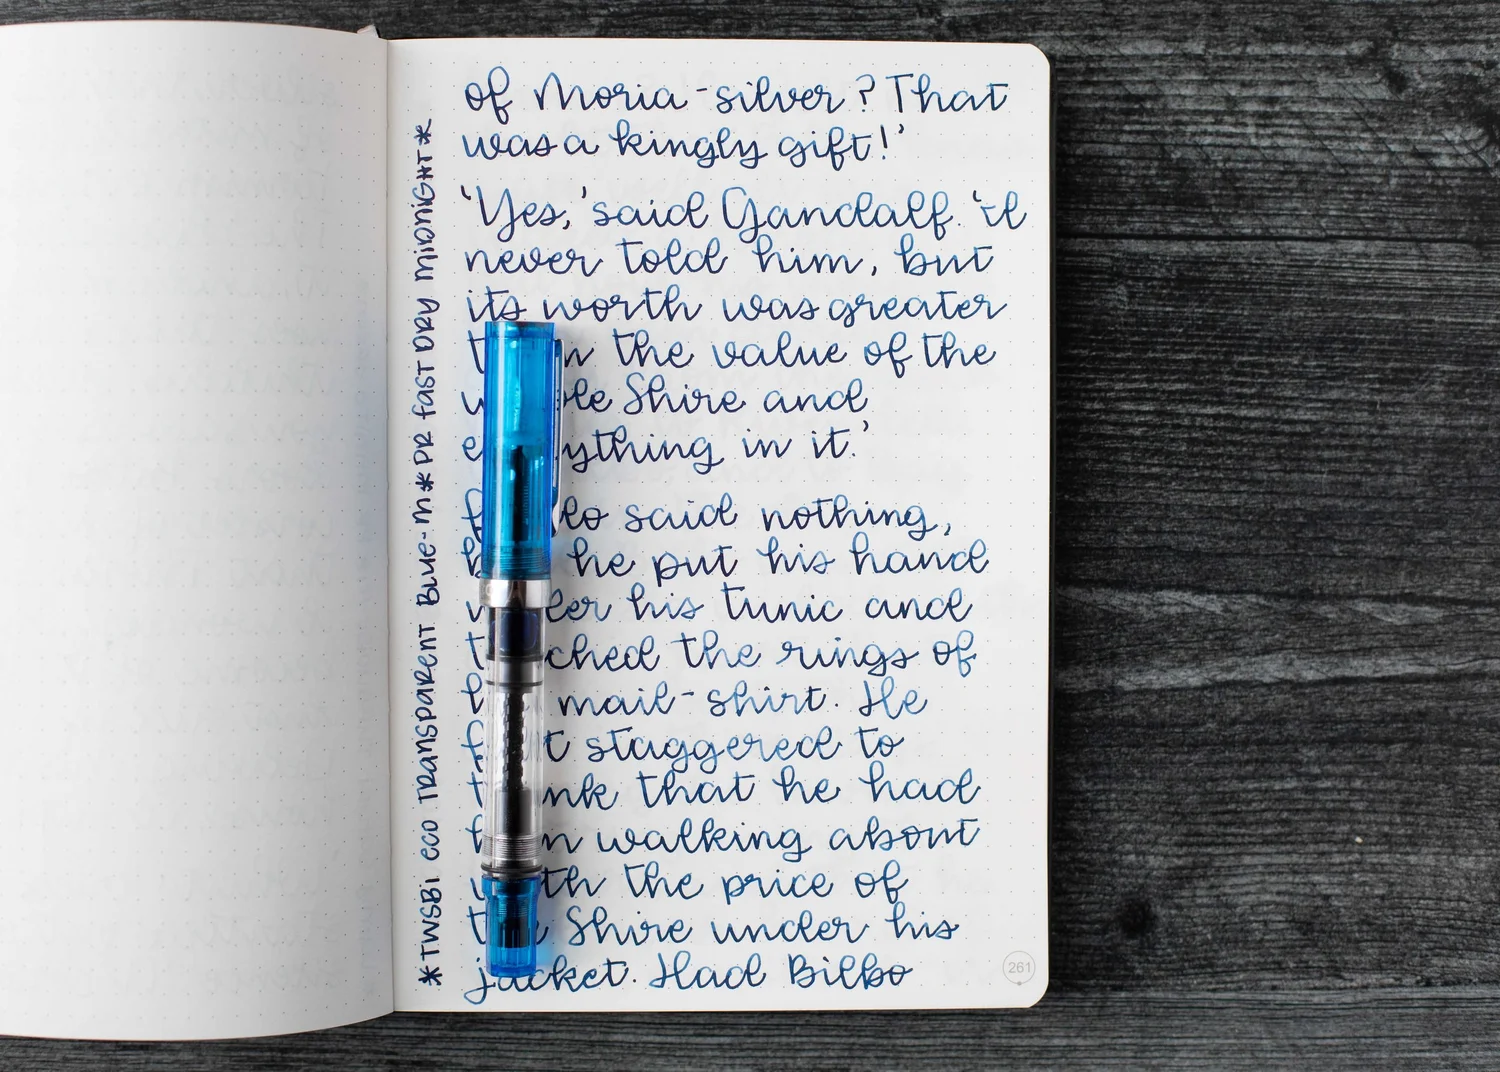 *TWSBI ECO TRANSPARENT BLUE-M*PR FAST DRY MIDNIGHT*
of Moria-silver? That
was a kingly gift!'
'Yes,' said Gandalf.
never told him, but
its worth was greater
the value of the
Shire and
in it.'
said nothing,
he put his hand
his tunic and
the rings of
mail-shirt. He
staggered to
that he had
walking about
the price of
Shire under his
jacket. Had Bilbo
261